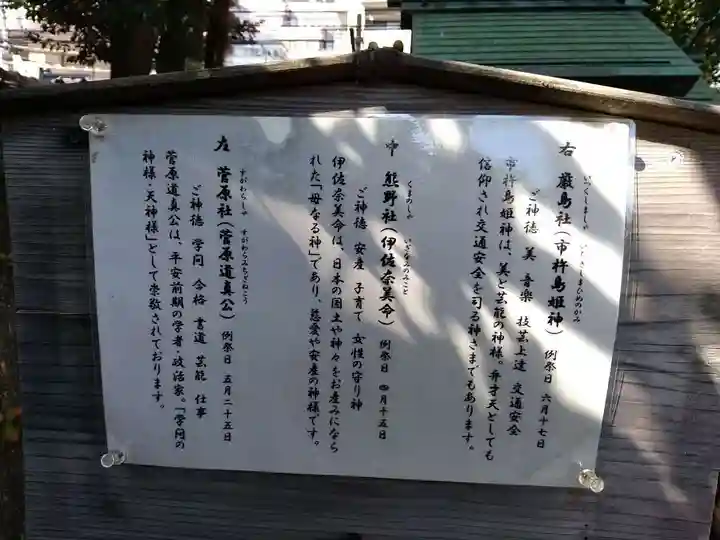 いつくしましゃ いちきしまひめのかみ
右 厳島社（市杵島姫神） 例祭日 六月十七日
ご神徳 美 音楽 技芸上達 交通安全
市杵島姫神は、美と芸能の神様。弁才天としても
信仰され交通安全を司る神さまでもあります。
くまのしゃ いざなみのみこと
中 熊野社（伊佐奈美命） 例祭日 四月十五日
ご神徳 安産 子育て 女性の守り神
伊佐奈美命は、日本の国土や神々をお産みになら
れた「母なる神」であり、慈愛や安産の神様です。
すがわらしゃ すがわらみちざねこう
左 菅原社（菅原道真公） 例祭日 五月二十五日
ご神徳 学問 合格 書道 芸能 仕事
菅原道真公は、平安前期の学者・政治家。「学問の
神様・天神様」として崇敬されております。